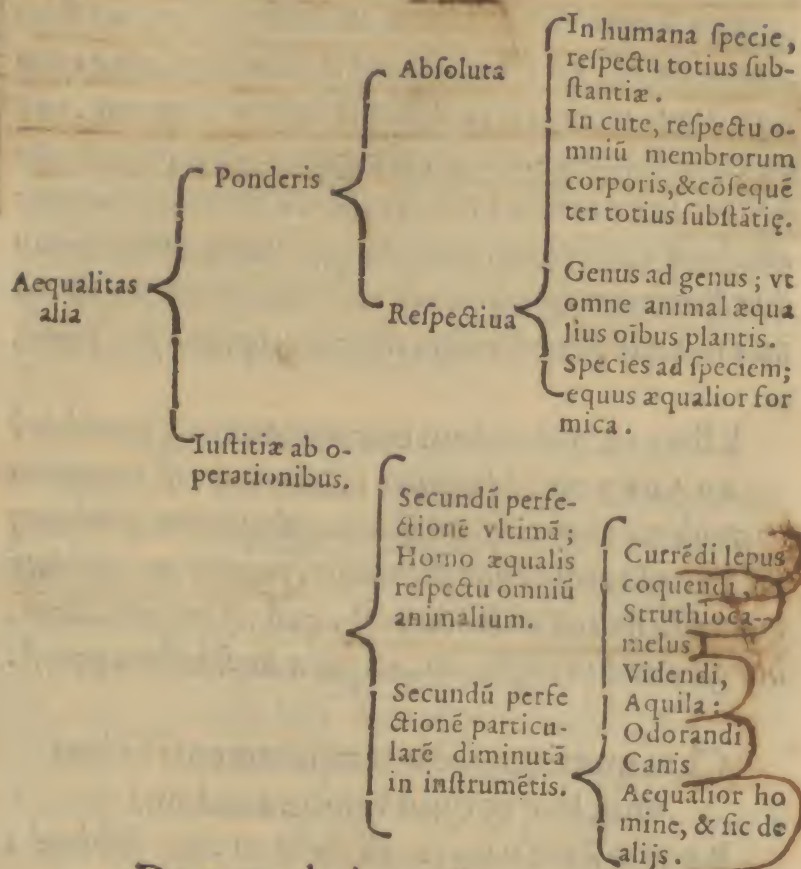 Aequalitas
alia
Ponderis
Abſoluta
In humana ſpecie,
reſpectu totius ſub-
ſtantiæ.
In cute, reſpectu o-
mniũ membrorum
corporis,&cõſequẽ
ter totius ſubſtãtię.
Reſpectiua
Genus ad genus; vt
omne animal æqua
lius oībus plantis.
Species ad ſpeciem;
equus æqualior for
mica.
Iuſtitiæ ab o-
perationibus.
Secundũ perfe-
ctionẽ vltimã;
Homo æqualis
reſpectu omniũ
animalium.
Secundũ perfe
ctionẽ particu-
larẽ diminutã
in inſtrumẽtis.
Currẽdi lepus
coquendi,
Struthioca-
melus
Videndi,
Aquila:
Odorandi
Canis
Aequalior ho
mine, & ſic de
alijs.